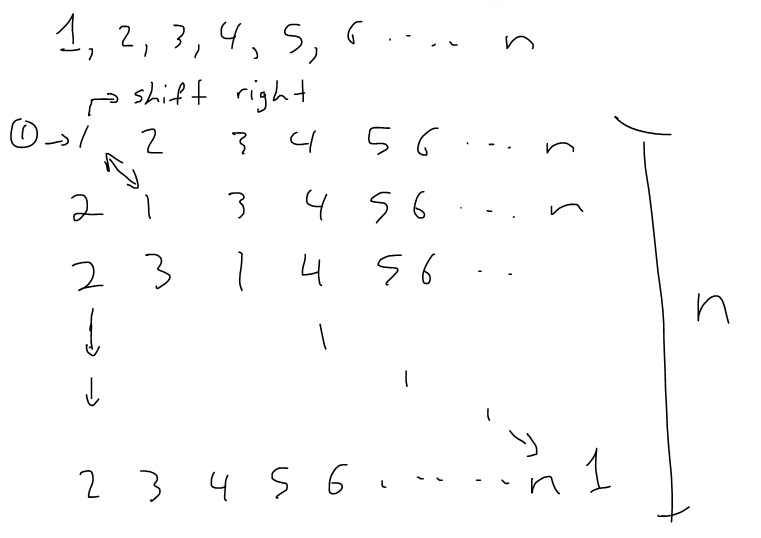 1, 2, 3, 4, 5, 6 ..... n
shift right
① → 1 2 3 4 5 6 ... n
2 1 3 4 5 6 ... n
2 3 1 4 5 6 ..
1
n
1
1
2 3 4 5 6 ...... n 1